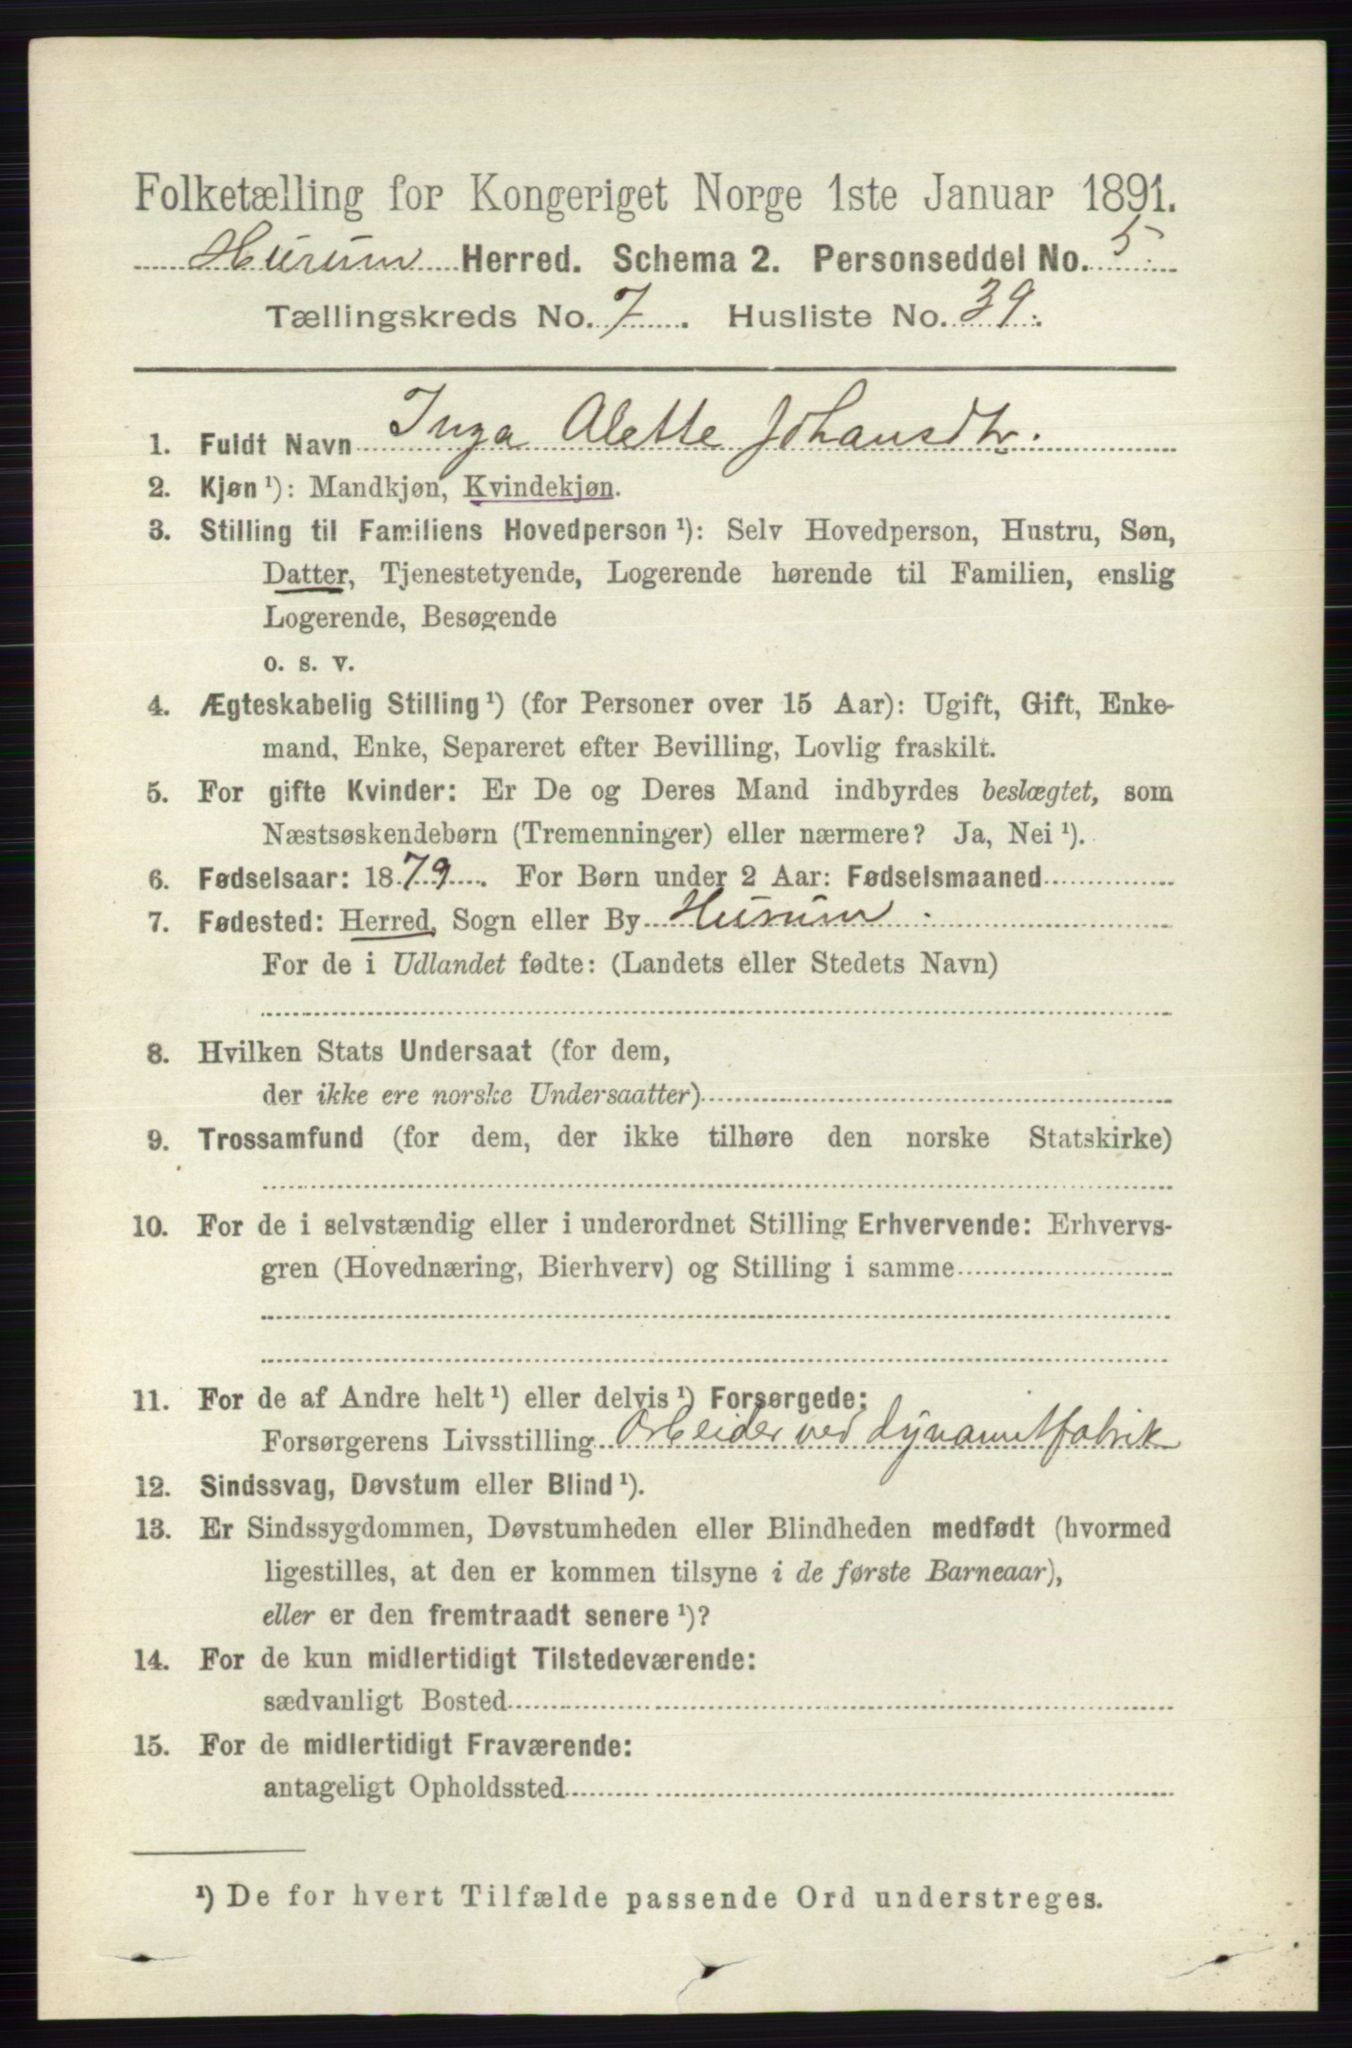 Folketælling for Kongeriget Norge 1ste Januar 1891.
Hurum Herred. Schema 2. Personseddel No. 5.
Tællingskreds No. 7. Husliste No. 39.
1. Fuldt Navn Inga Alette Johansdtr.
2. Kjøn ¹): Mandkjøn, Kvindekjøn.
3. Stilling til Familiens Hovedperson ¹): Selv Hovedperson, Hustru, Søn,
Datter, Tjenestetyende, Logerende hørende til Familien, enslig
Logerende, Besøgende
o. s. v.
4. Ægteskabelig Stilling ¹) (for Personer over 15 Aar): Ugift, Gift, Enke-
mand, Enke, Separeret efter Bevilling, Lovlig fraskilt.
5. For gifte Kvinder: Er De og Deres Mand indbyrdes beslægtet, som
Næstsøskendebørn (Tremenninger) eller nærmere? Ja, Nei ¹).
6. Fødselsaar: 1879. For Børn under 2 Aar: Fødselsmaaned
7. Fødested: Herred, Sogn eller By Hurum.
For de i Udlandet fødte: (Landets eller Stedets Navn)
8. Hvilken Stats Undersaat (for dem,
der ikke ere norske Undersaatter)
9. Trossamfund (for dem, der ikke tilhøre den norske Statskirke)
10. For de i selvstændig eller i underordnet Stilling Erhvervende: Erhvervs-
gren (Hovednæring, Bierhverv) og Stilling i samme
11. For de af Andre helt ¹) eller delvis ¹) Forsørgede:
Forsørgerens Livsstilling Arbeider ved dynamitfabrik
12. Sindssvag, Døvstum eller Blind ¹).
13. Er Sindssygdommen, Døvstumheden eller Blindheden medfødt (hvormed
ligestilles, at den er kommen tilsyne i de første Barneaar),
eller er den fremtraadt senere ¹)?
14. For de kun midlertidigt Tilstedeværende:
sædvanligt Bosted
15. For de midlertidigt Fraværende:
antageligt Opholdssted
¹) De for hvert Tilfælde passende Ord understreges.